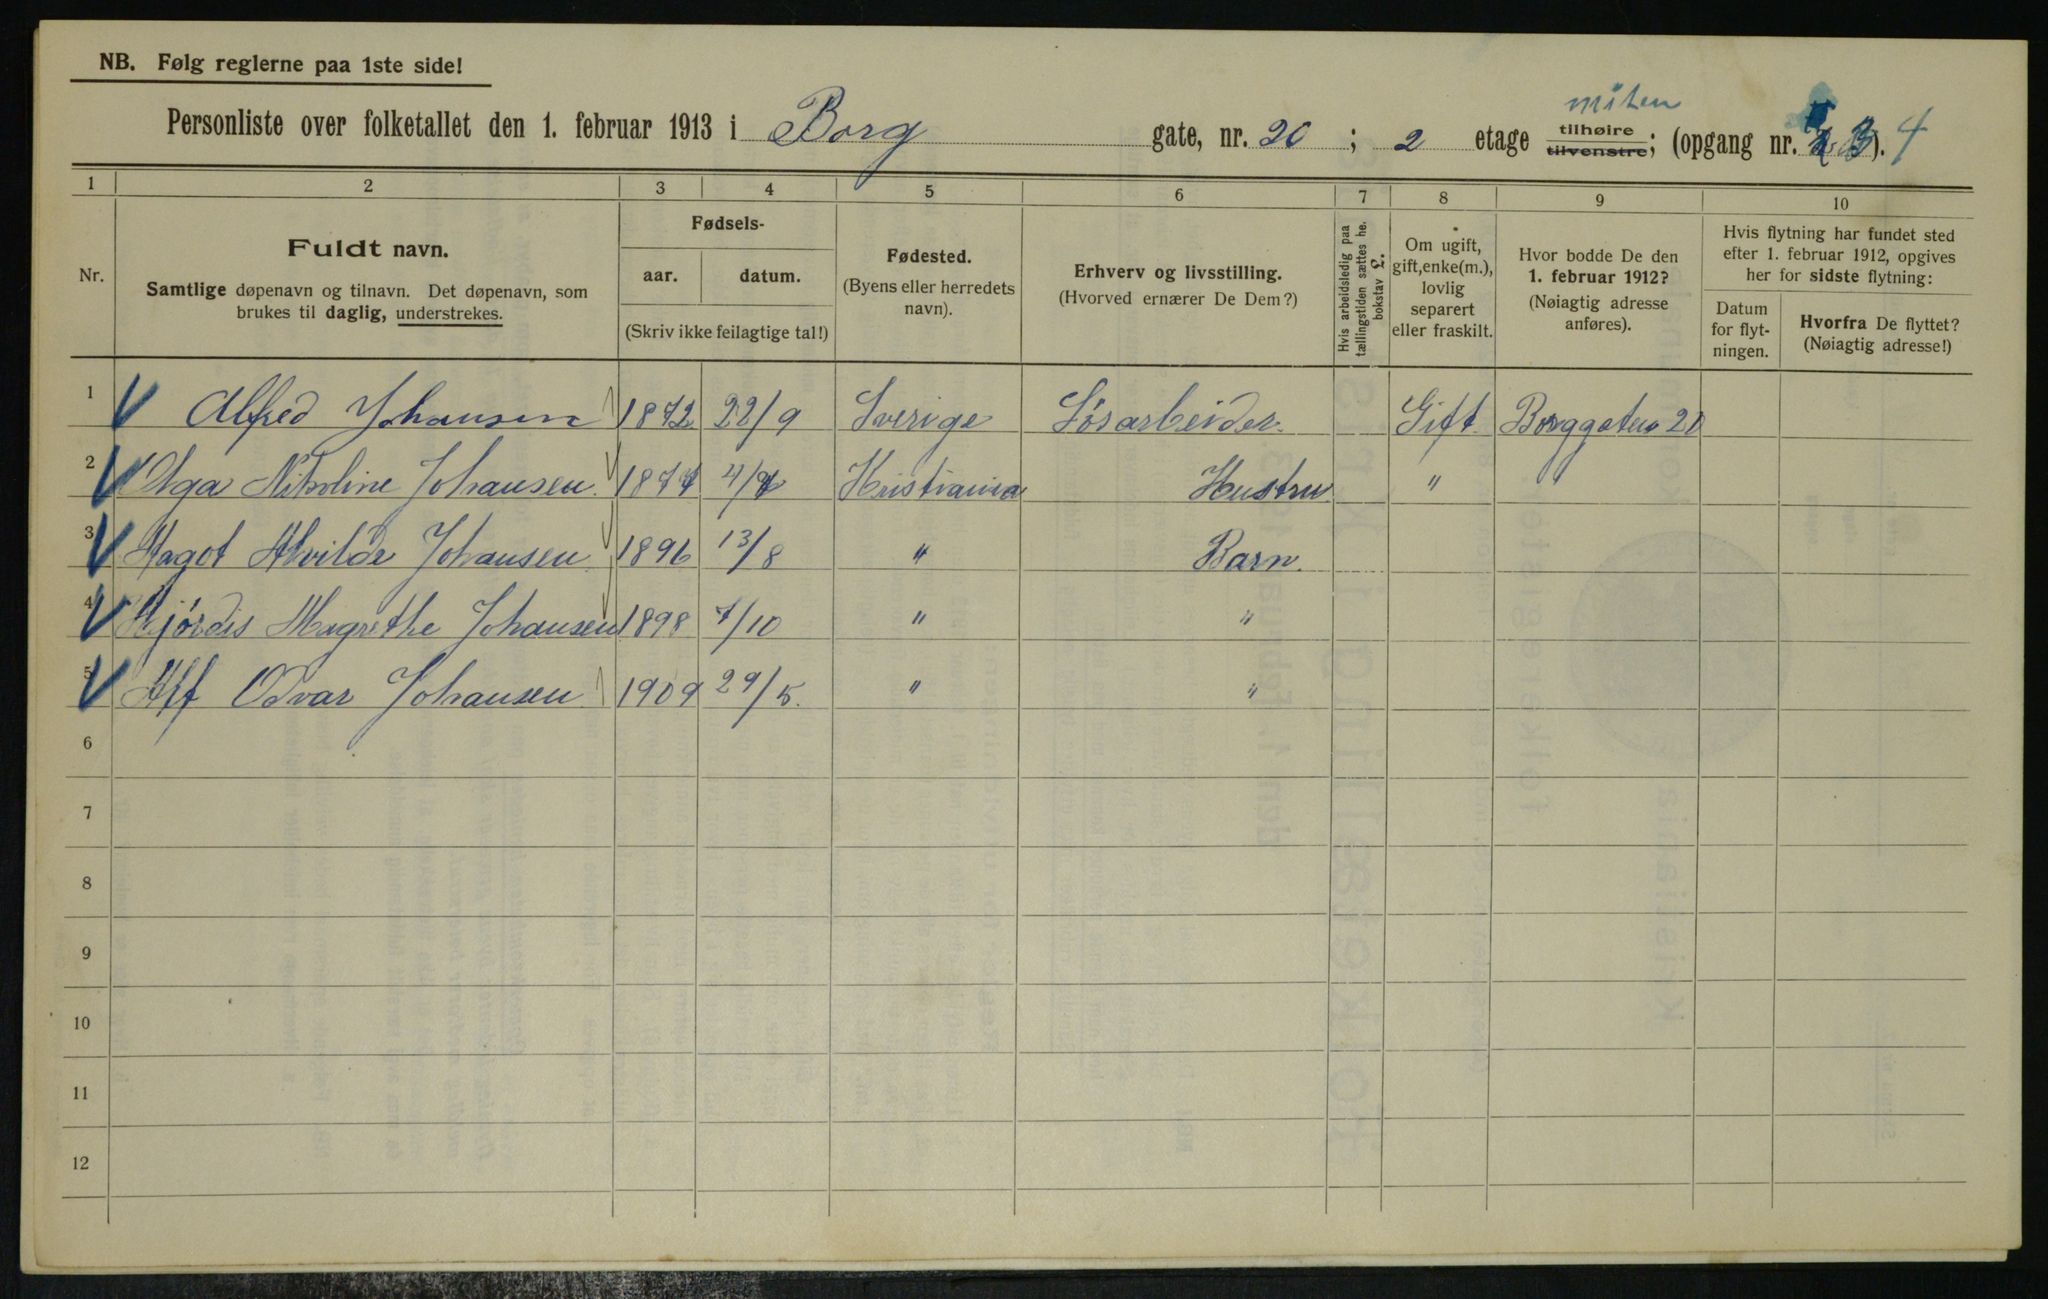 NB. Følg reglerne paa 1ste side!
Personliste over folketallet den 1. februar 1913 i Borg gate, nr. 20; 2 etage tilhøire tilvenstre; (opgang nr. B). 4
1 2 3 4 5 6 7 8 9 10
Nr.
Fuldt navn.
Samtlige døpenavn og tilnavn. Det døpenavn, som
brukes til daglig, understrekes.
Fødsels-
aar. datum.
(Skriv ikke feilagtige tal!)
Fødested.
(Byens eller herredets
navn).
Erhverv og livsstilling.
(Hvorved ernærer De Dem?)
Hvis arbeidsledig paa
tællingstiden sættes he.
bokstav L.
Om ugift,
gift, enke(m.),
lovlig
separert
eller fraskilt.
Hvor bodde De den
1. februar 1912?
(Nøiagtig adresse
anføres).
Hvis flytning har fundet sted
efter 1. februar 1912, opgives
her for sidste flytning:
Datum
for flyt-
ningen.
Hvorfra De flyttet?
(Nøiagtig adresse!)
1 Alfred Johansen 1872 22/9 Sverige Løsarbeider. Gift Borggaten 20
2 Olga Nikoline Johansen 1877 Kristiania Hustru "
3 Magot Alvilde Johansen 1896 13/8 " Barn.
4 Hjørdis Magrethe Johansen 1898 7/10 " "
5 Alf Odvar Johansen 1909 29/5. " "
6
7
8
9
10
11
12